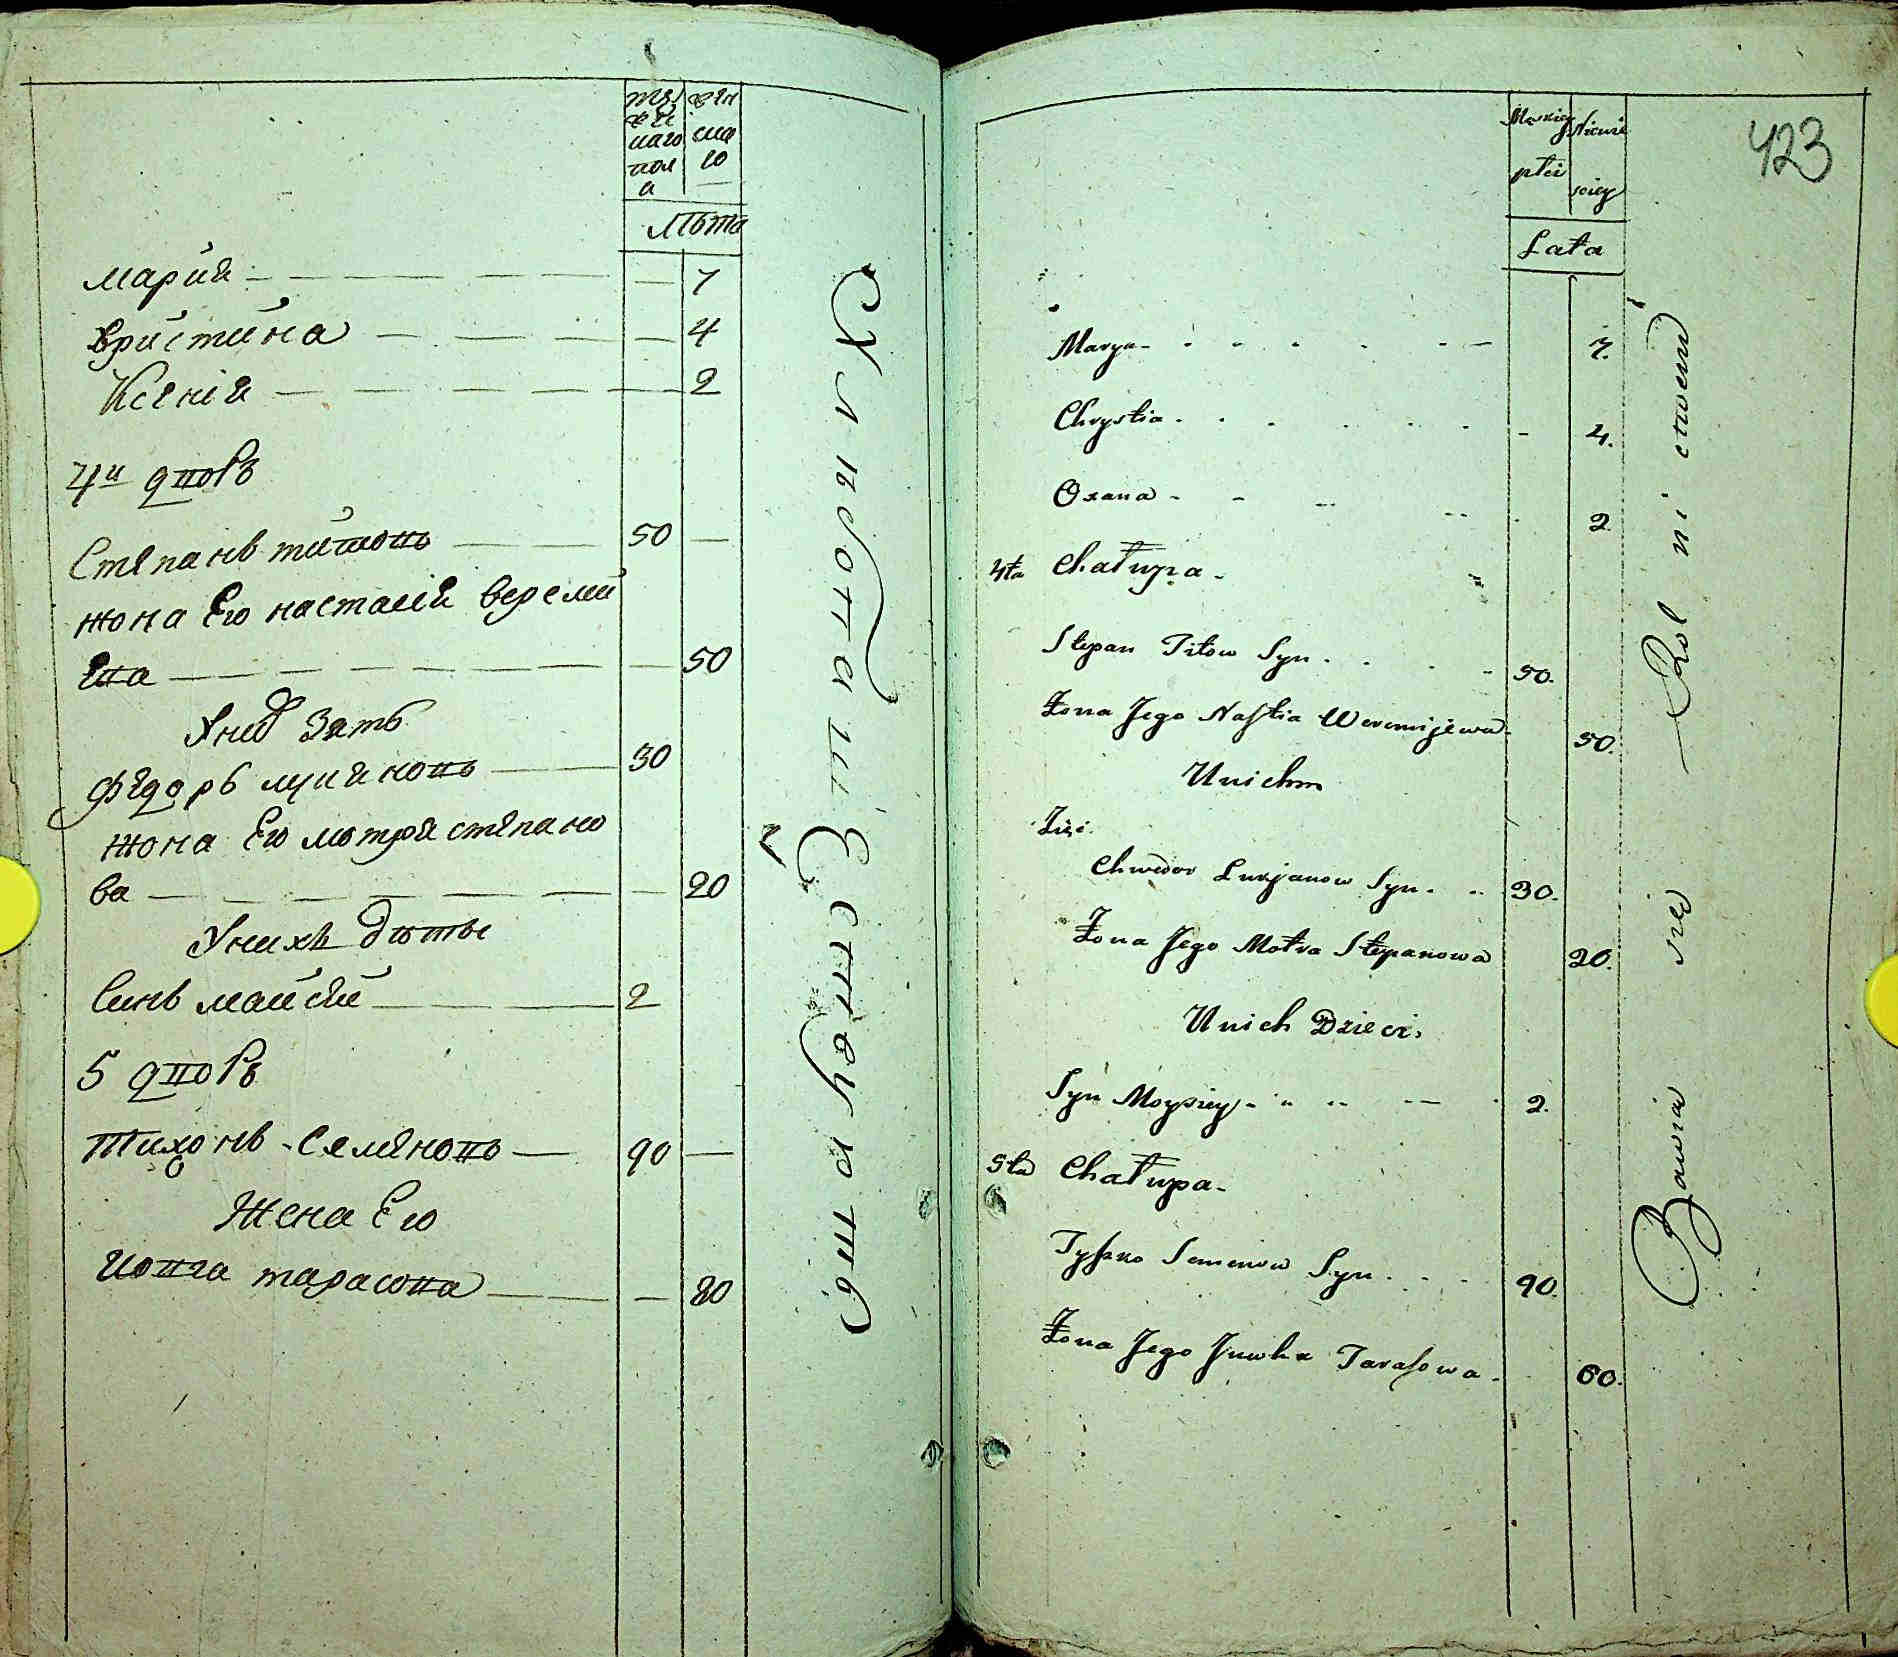 муж
ска
наго
пол
а
жен
ска
го
Лѣта
мария 7
христина 4
Ксения 2
4й дворъ
Степанъ титовъ 50
жона Его настасия веремѝ
Ева 50
Унеѣ Зять
федоръ лукияновъ 30
жона Его мотря степано
ва 20
Унихъ дѣти
Синъ майсей 2
5 дворъ
Тихонъ Семеновъ 90
Жена Его
тарасова 80
Хлиботашествують
423
Męskiey
płci
Niewie
sciey
Lata
Marya 7.
Chrystia 4.
Oxana 2.
4ta Chałupa
Stepan Titow Syn 50.
Żona Jego Nastia Weremijewa 50.
Unichm
Zięć
Chwedor Lukjanow Syn 30.
Żona Jego Motra Stepanowa 20.
Unich Dzieci
Syn Moysiey 2.
5ta Chałupa
Tyszko Semenow Syn 90.
Żona Jego Juwka Tarasowa 60.
Bawia sie Rolnictwem